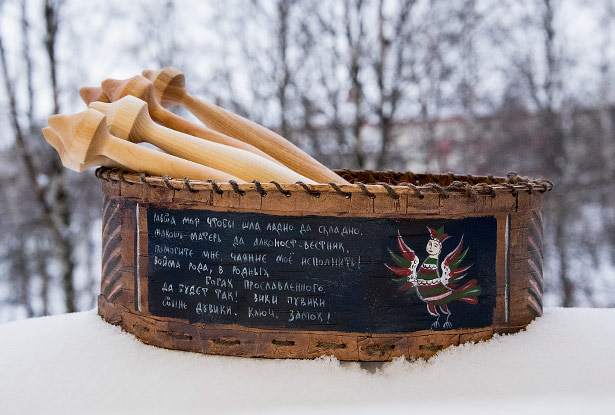 чтобы шла ладно да складно.
Макошь-матерь да Алконост-вестник,
помогите мне, чаяние моё исполнить!
Во имя рода, в родных
богах прославленного
Да будет так! Вики пувики
дувики. Ключ, замок!